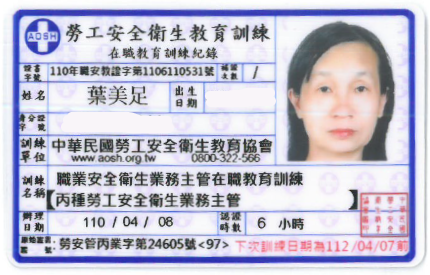 AOSH
勞工安全衛生教育訓練
在職教育訓練紀錄
證書字號 110年職安教證字第1106110531號 補證次數 /
姓名 葉美足 出生日期
身分證字號
訓練單位 中華民國勞工安全衛生教育協會
www.aosh.org.tw 0800-322-566
訓練名稱 職業安全衛生業務主管在職教育訓練
【丙種勞工安全衛生業務主管】
辦理日期 110 / 04 / 08 認證時數 6 小時
勞安管丙業字第24605號<97> 下次訓練日期為112 /04/07前